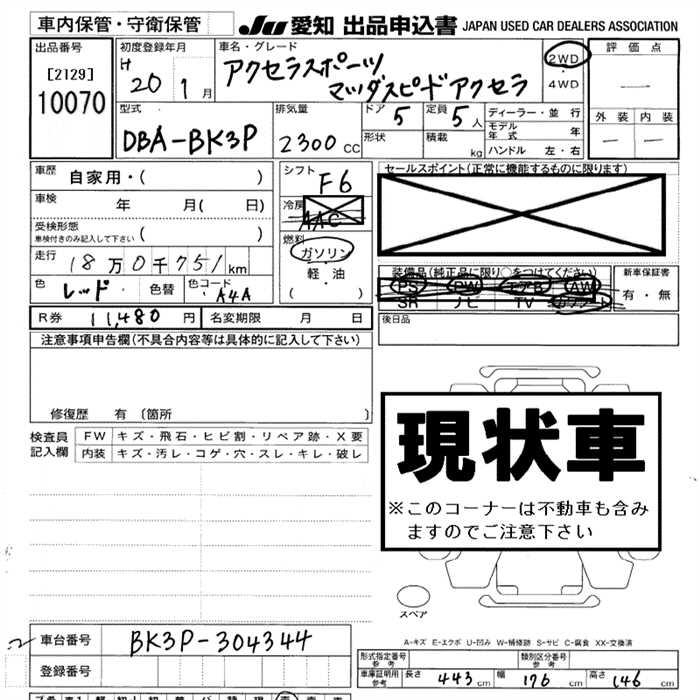 車内保管・守衛保管
JU 愛知 出品申込書 JAPAN USED CAR DEALERS ASSOCIATION
出品番号
[2129]
10070
初度登録年月
H 20 1月
車名・グレード
アクセラスポーツ
マツダスピードアクセラ
2WD
・
4WD
評価点
―
外装 内装
― ―
型式
DBA-BK3P
排気量
2300 CC
ドア 5
形状
定員 5人
積載 kg
ディーラー・並行
モデル年式 年
ハンドル 左・右
車歴 自家用・( )
車検 年 月( 日)
受検形態
車検付きのみ記入して下さい ( )
走行 18万0千751km
色 レッド・ 色替 色コード A4A
R券 11,480円 名変期限 月 日
シフト F6
冷房 AAC
燃料
ガソリン
軽・油
( ・ )
セールスポイント(正常に機能するものに限ります)
装備品(純正品に限り○をつけてください)
PS PW エアB AW
SR ナビ TV カワシート
新車保証書
有・無
後日品
注意事項申告欄(不具合内容等は具体的に記入して下さい)
修復歴 有 〔箇所 〕
検査員記入欄
FW キズ・飛石・ヒビ割・リペア跡・X要
内装 キズ・汚レ・コゲ・穴・スレ・キレ・破レ
現状車
※このコーナーは不動車も含み
ますのでご注意下さい
スペア
A-キズ E-エクボ U-凹み W-補修跡 S-サビ C-腐食 XX-交換済
車台番号 BK3P-304344
登録番号
形式指定番号 参考
類別区分番号 参考
車庫証明用 参考 長さ 443cm 幅 176cm 高さ 146cm